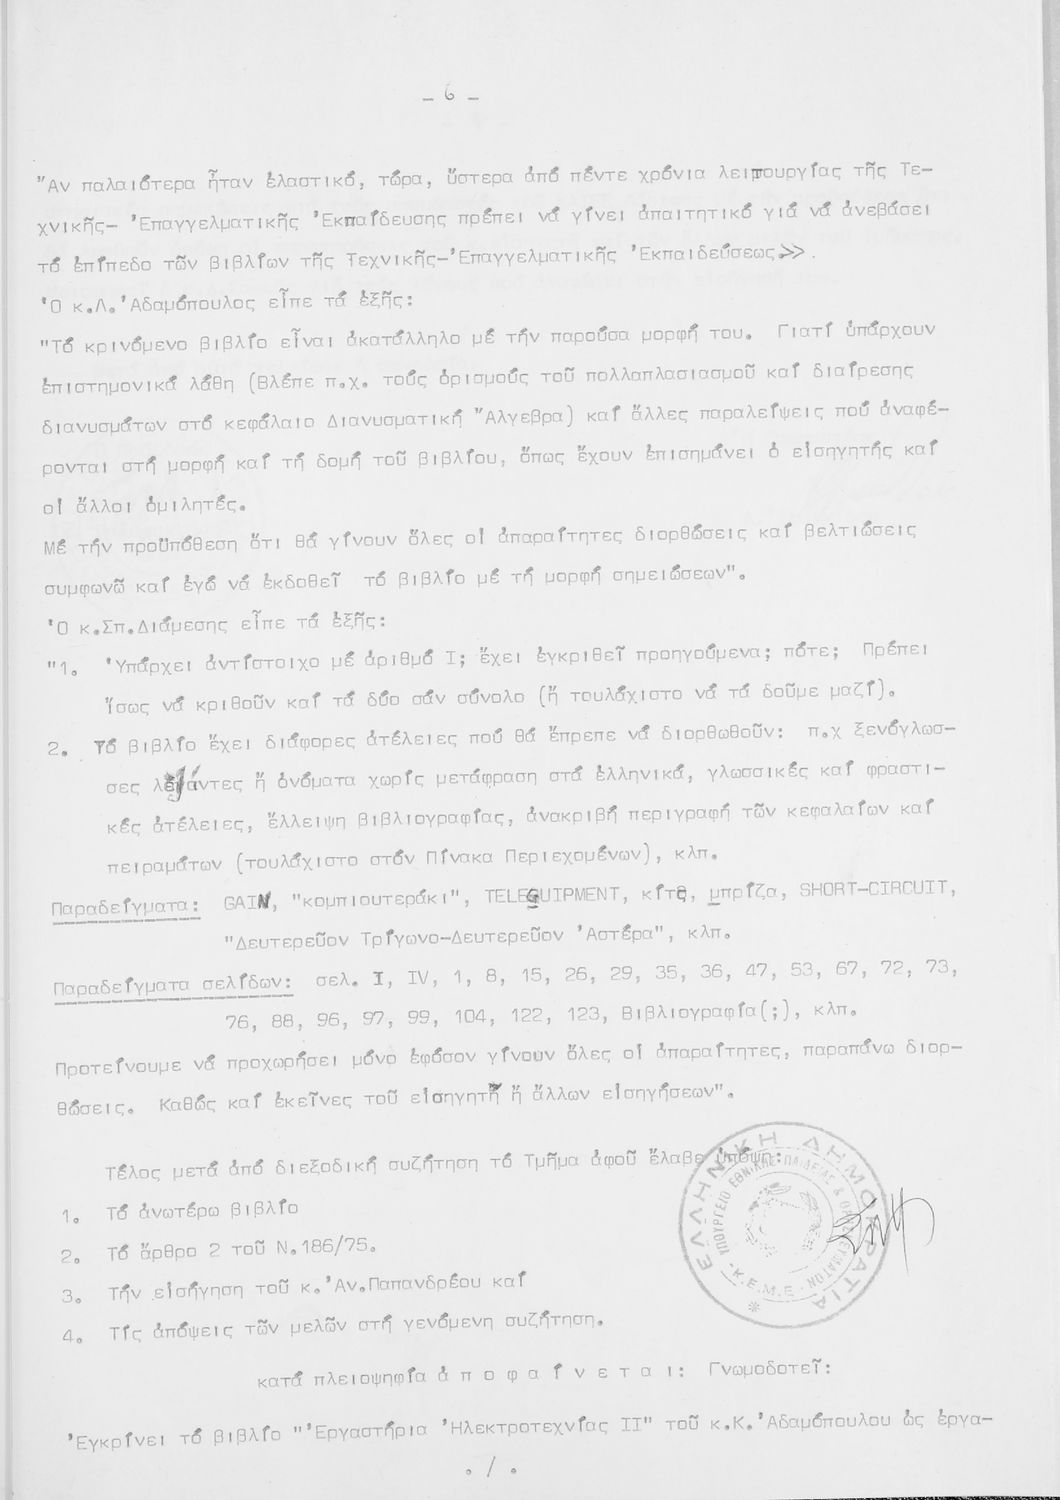 - 6 -
"Αν παλαιότερα ἦταν ἐλαστικό, τώρα, ὕστερα ἀπό πέντε χρόνια λειτουργίας τῆς Τε-
χνικῆς- Ἐπαγγελματικῆς Ἐκπαίδευσης πρέπει νά γίνει ἀπαιτητικό γιά νά ἀνεβάσει
τό ἐπίπεδο τῶν βιβλίων τῆς Τεχνικῆς-Ἐπαγγελματικῆς Ἐκπαιδεύσεως≫.
Ὁ κ.Λ.Ἀδαμόπουλος εἶπε τά ἑξῆς:
"Τό κρινόμενο βιβλίο εἶναι ἀκατάλληλο μέ τήν παροῦσα μορφή του. Γιατί ὑπάρχουν
ἐπιστημονικά λάθη (Βλέπε π.χ. τούς ὁρισμούς τοῦ πολλαπλασιασμοῦ καί διαίρεσης
διανυσμάτων στό κεφάλαιο Διανυσματική Ἄλγεβρα) καί ἄλλες παραλείψεις πού ἀναφέ-
ρονται στή μορφή καί τή δομή τοῦ βιβλίου, ὅπως ἔχουν ἐπισημάνει ὁ εἰσηγητής καί
οἱ ἄλλοι ὁμιλητές.
Μέ τήν προϋπόθεση ὅτι θά γίνουν ὅλες οἱ ἀπαραίτητες διορθώσεις καί βελτιώσεις
συμφωνῶ καί ἐγώ νά ἐκδοθεῖ τό βιβλίο μέ τή μορφή σημειώσεων".
Ὁ κ.Σπ.Διάμεσης εἶπε τά ἑξῆς:
"1. Ὑπάρχει ἀντίστοιχο μέ ἀριθμό Ι; ἔχει ἐγκριθεῖ προηγούμενα; πότε; Πρέπει
ἴσως νά κριθοῦν καί τά δύο σάν σύνολο (ἤ τουλάχιστο νά τά δοῦμε μαζί).
2. Τό βιβλίο ἔχει διάφορες ἀτέλειες πού θά ἔπρεπε νά διορθωθοῦν: π.χ ξενόγλωσ-
σες λεζάντες ἤ ὀνόματα χωρίς μετάφραση στά ἑλληνικά, γλωσσικές καί φραστι-
κές ἀτέλειες, ἔλλειψη βιβλιογραφίας, ἀνακριβή περιγραφή τῶν κεφαλαίων καί
πειραμάτων (τουλάχιστο στόν Πίνακα Περιεχομένων), κλπ.
Παραδείγματα: GAIN, "κομπιουτεράκι", TELEQUIPMENT, κίτς, μπρίζα, SHORT-CIRCUIT,
"Δευτερεῦον Τρίγωνο-Δευτερεῦον Ἀστέρα", κλπ.
Παραδείγματα σελίδων: σελ. I, IV, 1, 8, 15, 26, 29, 35, 36, 47, 53, 67, 72, 73,
76, 88, 96, 97, 99, 104, 122, 123, Βιβλιογραφία(;), κλπ.
Προτείνουμε νά προχωρήσει μόνο ἐφόσον γίνουν ὅλες οἱ ἀπαραίτητες, παραπάνω διορ-
θώσεις. Καθώς καί ἐκεῖνες τοῦ εἰσηγητῆ ἤ ἄλλων εἰσηγήσεων".
Τέλος μετά ἀπό διεξοδική συζήτηση τό Τμῆμα ἀφοῦ ἔλαβε ὑπόψη:
1. Τό ἀνωτέρω βιβλίο
2. Τό ἄρθρο 2 τοῦ Ν.186/75.
3. Τήν εἰσήγηση τοῦ κ.Ἀν.Παπανδρέου καί
4. Τίς ἀπόψεις τῶν μελῶν στή γενόμενη συζήτηση.
ΕΛΛΗΝΙΚΗ ΔΗΜΟΚΡΑΤΙΑ
ΥΠΟΥΡΓΕΙΟ ΕΘΝΙΚΗΣ ΠΑΙΔΕΙΑΣ & ΘΡΗΣΚΕΥΜΑΤΩΝ
-Κ.Ε.Μ.Ε.-
κατά πλειοψηφία ἀ π ο φ α ί ν ε τ α ι: Γνωμοδοτεῖ:
Ἐγκρίνει τό βιβλίο "Ἐργαστήρια Ἠλεκτροτεχνίας ΙΙ" τοῦ κ.Κ.Ἀδαμόπουλου ὡς ἐργα-
./.